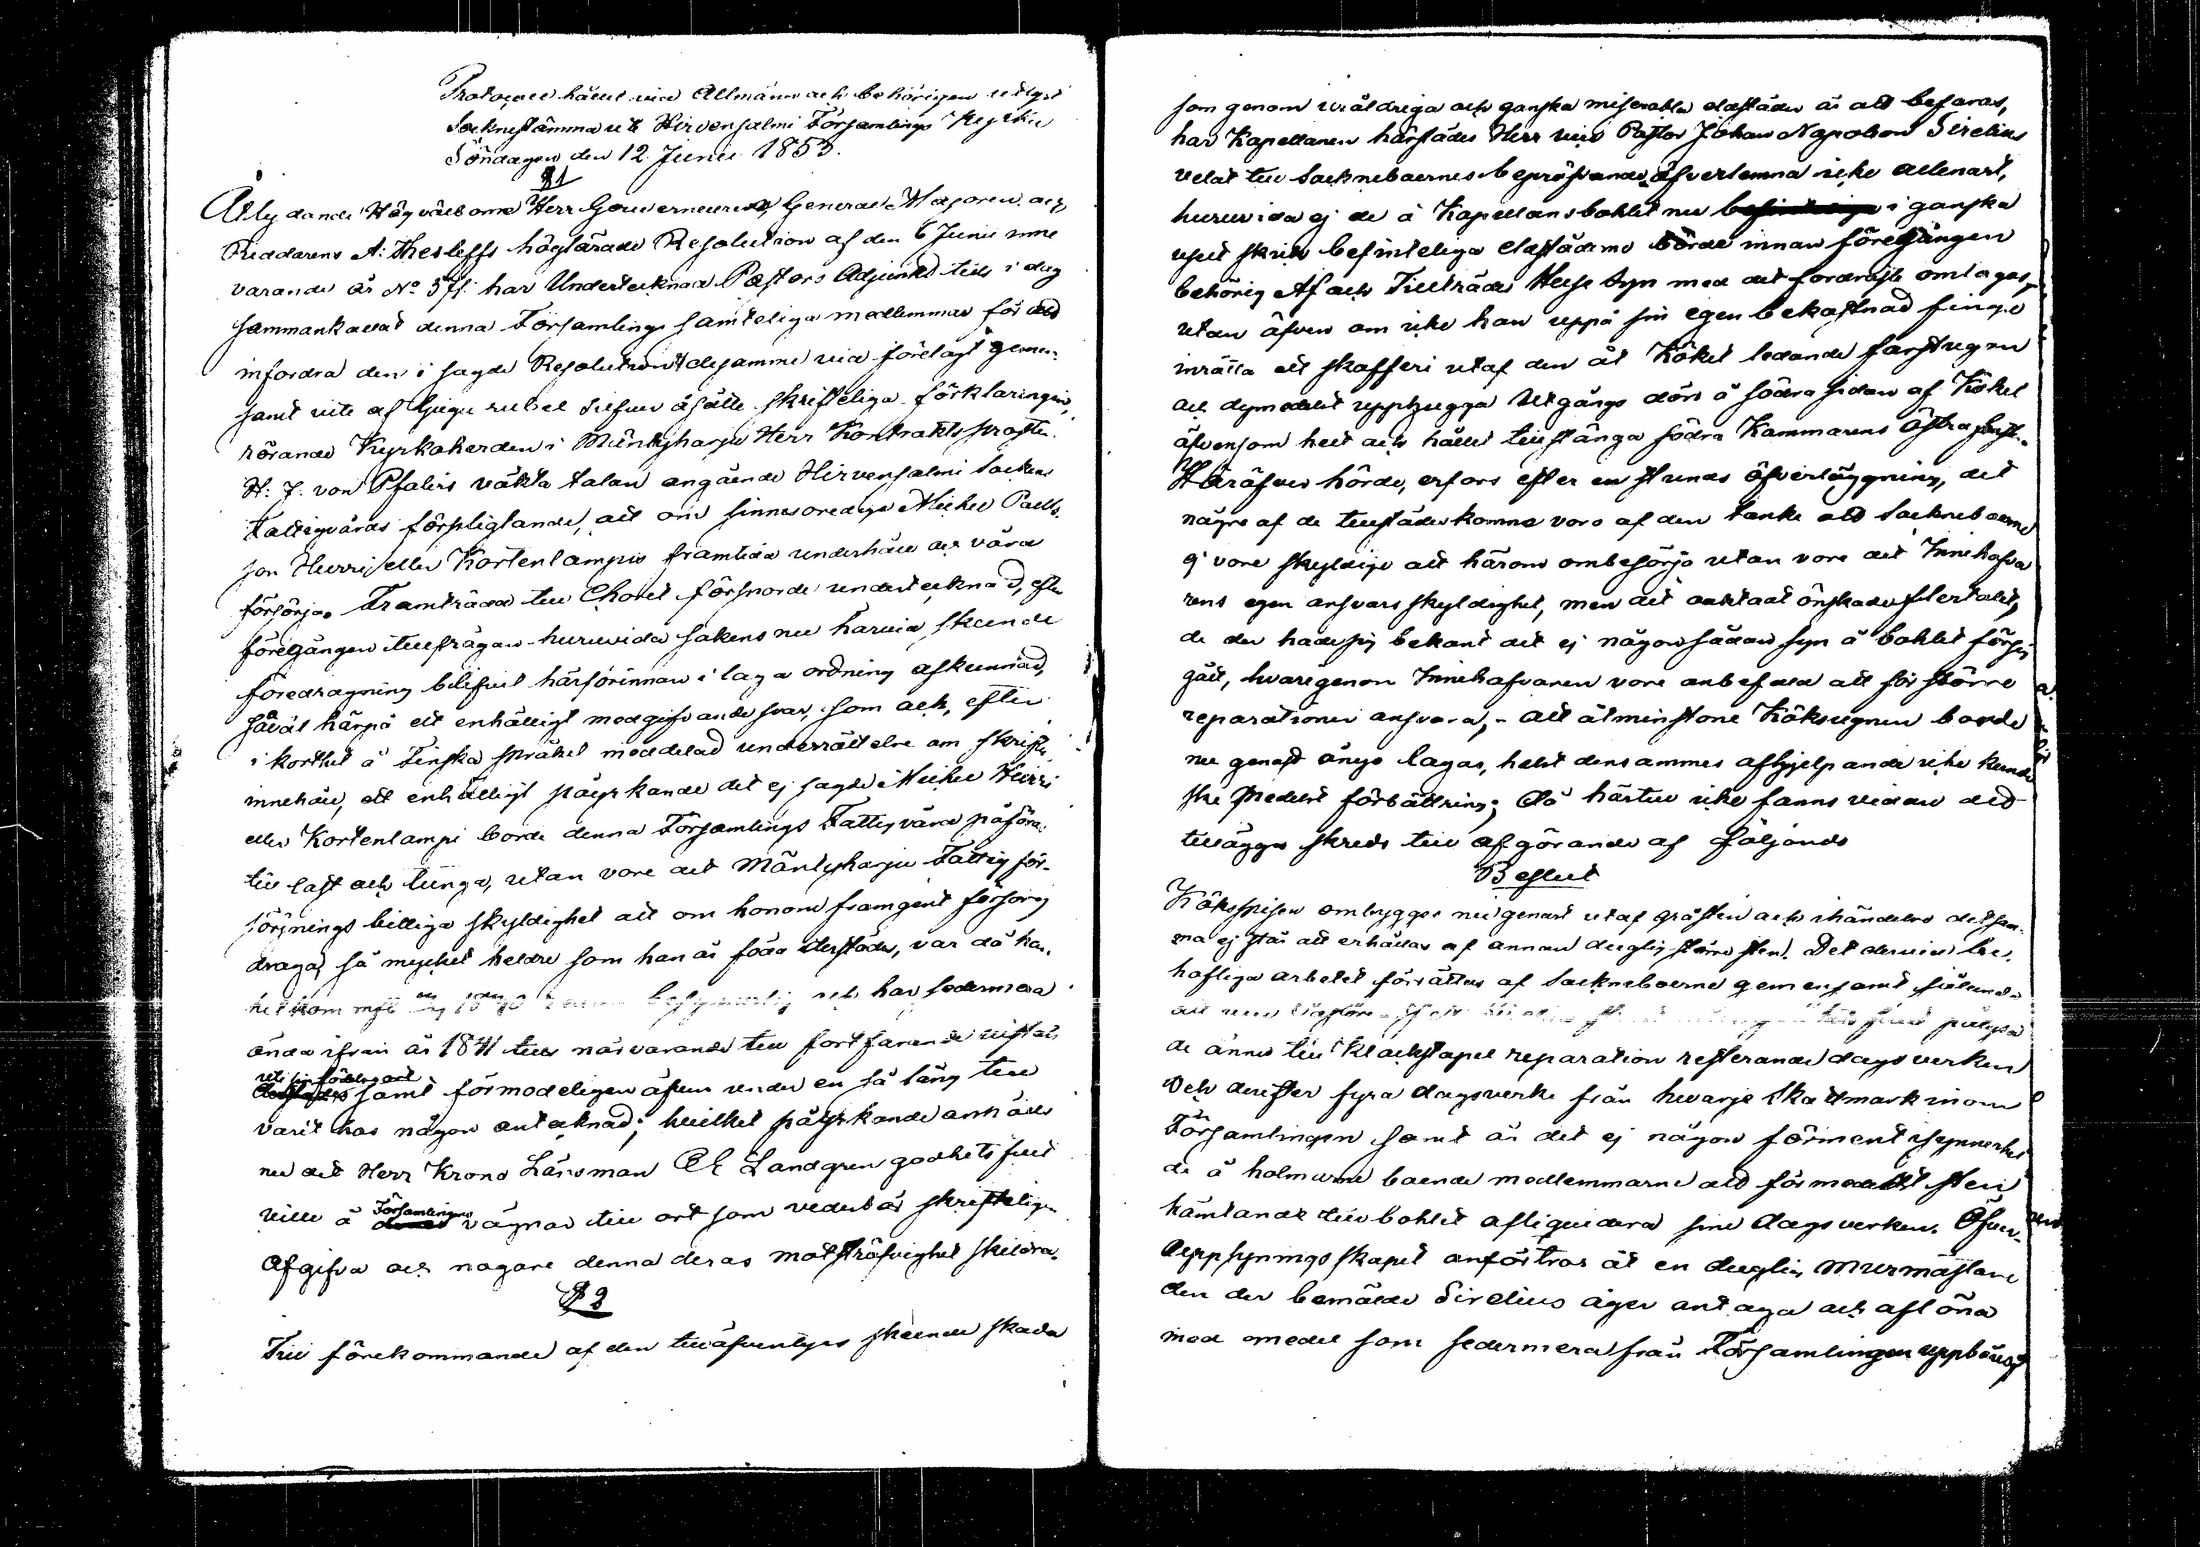 Protocoll hållet vid Allmänn och behörigen utlyst
Sockenstämma uti Hirvensalmi Församlings Kyrka
Söndagen den 12 Junii 1853.
§1
Åtlydande Högvälborne Herr Gouverneurens General Majoren och
Riddarens A: Thesleffs högtärade Resolution af den 6 Junii inne
varande år No har Undertecknad Pastors Adjunct tills i dag
sammankallat denna Församlings samteliga medlemmar för att
infordra den i sagde Resolution desamme vid förelagt gemen-
samt vite af tjugu rubel Silfver ålagde skrifteliga förklaringen,
rörande Kyrkoherden i Mäntyharju Herr Kontraktsprosten
H: J. von Pfalers väkta talan angående Hirvensalmi Sockens
Fattigvårds förpligtande, att om sinnesoredige Michel Pauls
son Hurri eller Kortenlampis framtida underhåll och vård
försörja. Framträdd till Choret försporde undertecknad, efter
föregången tillfrågan huruvida sakens nu harvid skeende
föredragning blifvit härförinnan i laga ordning afkunnad,
såväl härpå ett enhälligt medgifvande svar, som ock, efter
i korthet å Finska språket meddelad underrättelse om skriftens
innehåll, ett enhälligt påyrkande det ej sagde Michel Hurri
eller Kortenlampi borde denna Församlings Fattigvård påföras
till last och tunga, utan vore det Mäntyharju Fattigför-
sörjnings billiga skyldighet att om honom framgent försorg
draga, så mycket heldre som han är född derstädes, var då han
hitkom har sedermera
ända ifrån år 1841 tills närvarande till fortfarande vistats
samt förmodeligen äfven under en så lång tid
varit hos någon antecknad; hvilket påyrkande anhölls
nu det Herr Krono Länsman C E Landgren godhetsfullt
ville å Församlingens vägnar till ort som vederbör skrifteligen
Afgifva och nogare denna deras motsträfvighet skildra.
§ 2
Till förekommande af den tilläfventyrs skeende skada
som genom uråldriga och ganska miserabla eldstäder är att befaras,
har Kapellanen härstädes Herr vice Pastor Johan Napoleon Sirelius
velat till Socknboernes bepröfvande öfverlemna icke allenast,
huruvida ej de å Kapellansbohlet nu i ganska
uselt skick befinteliga eldstäderne borde innan föregången
behörig Af och Tillträdes Huse Syn med det fordersamste omlagas,
utan äfven om icke han uppå sin egen bekostnad finge
inrätta ett skafferi utaf den åt Köket ledande farstugan
och dymedelst uppbugga Utgångs dörr å södra sidan af Köket
äfvensom helt och hållet tillstänga södra Kammarens Östra fenst.
Häröfver hörde, erfors efter en stunds öfverläggning, det
någre af de tillstädeskomne voro af den tanke att Socknboerne
ej vore skyldige att härom ombesörja utan vore det Innehafva
rens egen ansvarsskyldighet, men det önskade flertalet,
de der hade sig bekant det ej någon sådan syn å bohlet försig
gått, hvarigenom Innehafvaren vore anbefald att för större
reparationer ansvara, - att åtminstone Köksugnen borde
nu genast ånyo lagas, helst densammes afhjelpande icke kunde
ske medelst förbättring; Då härtill icke fanns vidare att
tillägga skreds till afgörande af följande
Beslut
Köksspisen ombygges nu genast utaf gråsten och ihändelse detsam-
ma ej står att erhållas af annan duglig större sten. Det dervid be-
hofliga arbetet förrättas af Socknboerne gemensamt sålunda
att
de ännu till Klockstapel reparation resterande dagsverken
Och derefter fyra dagsverke från hvarje Skattmark inom
Församlingen samt är det ej någon förment isynnerhet
de å holmarne boende medlemmarne att förmedelst sten
hämtande till bohlet afliqvidera sine dagsverken. Öfver
Uppsyningsskapet anförtros åt en duglig murmästare
den der bemälde Sirelius äger antaga och aflöna
med medel som sedermera från Församlingen uppbäras